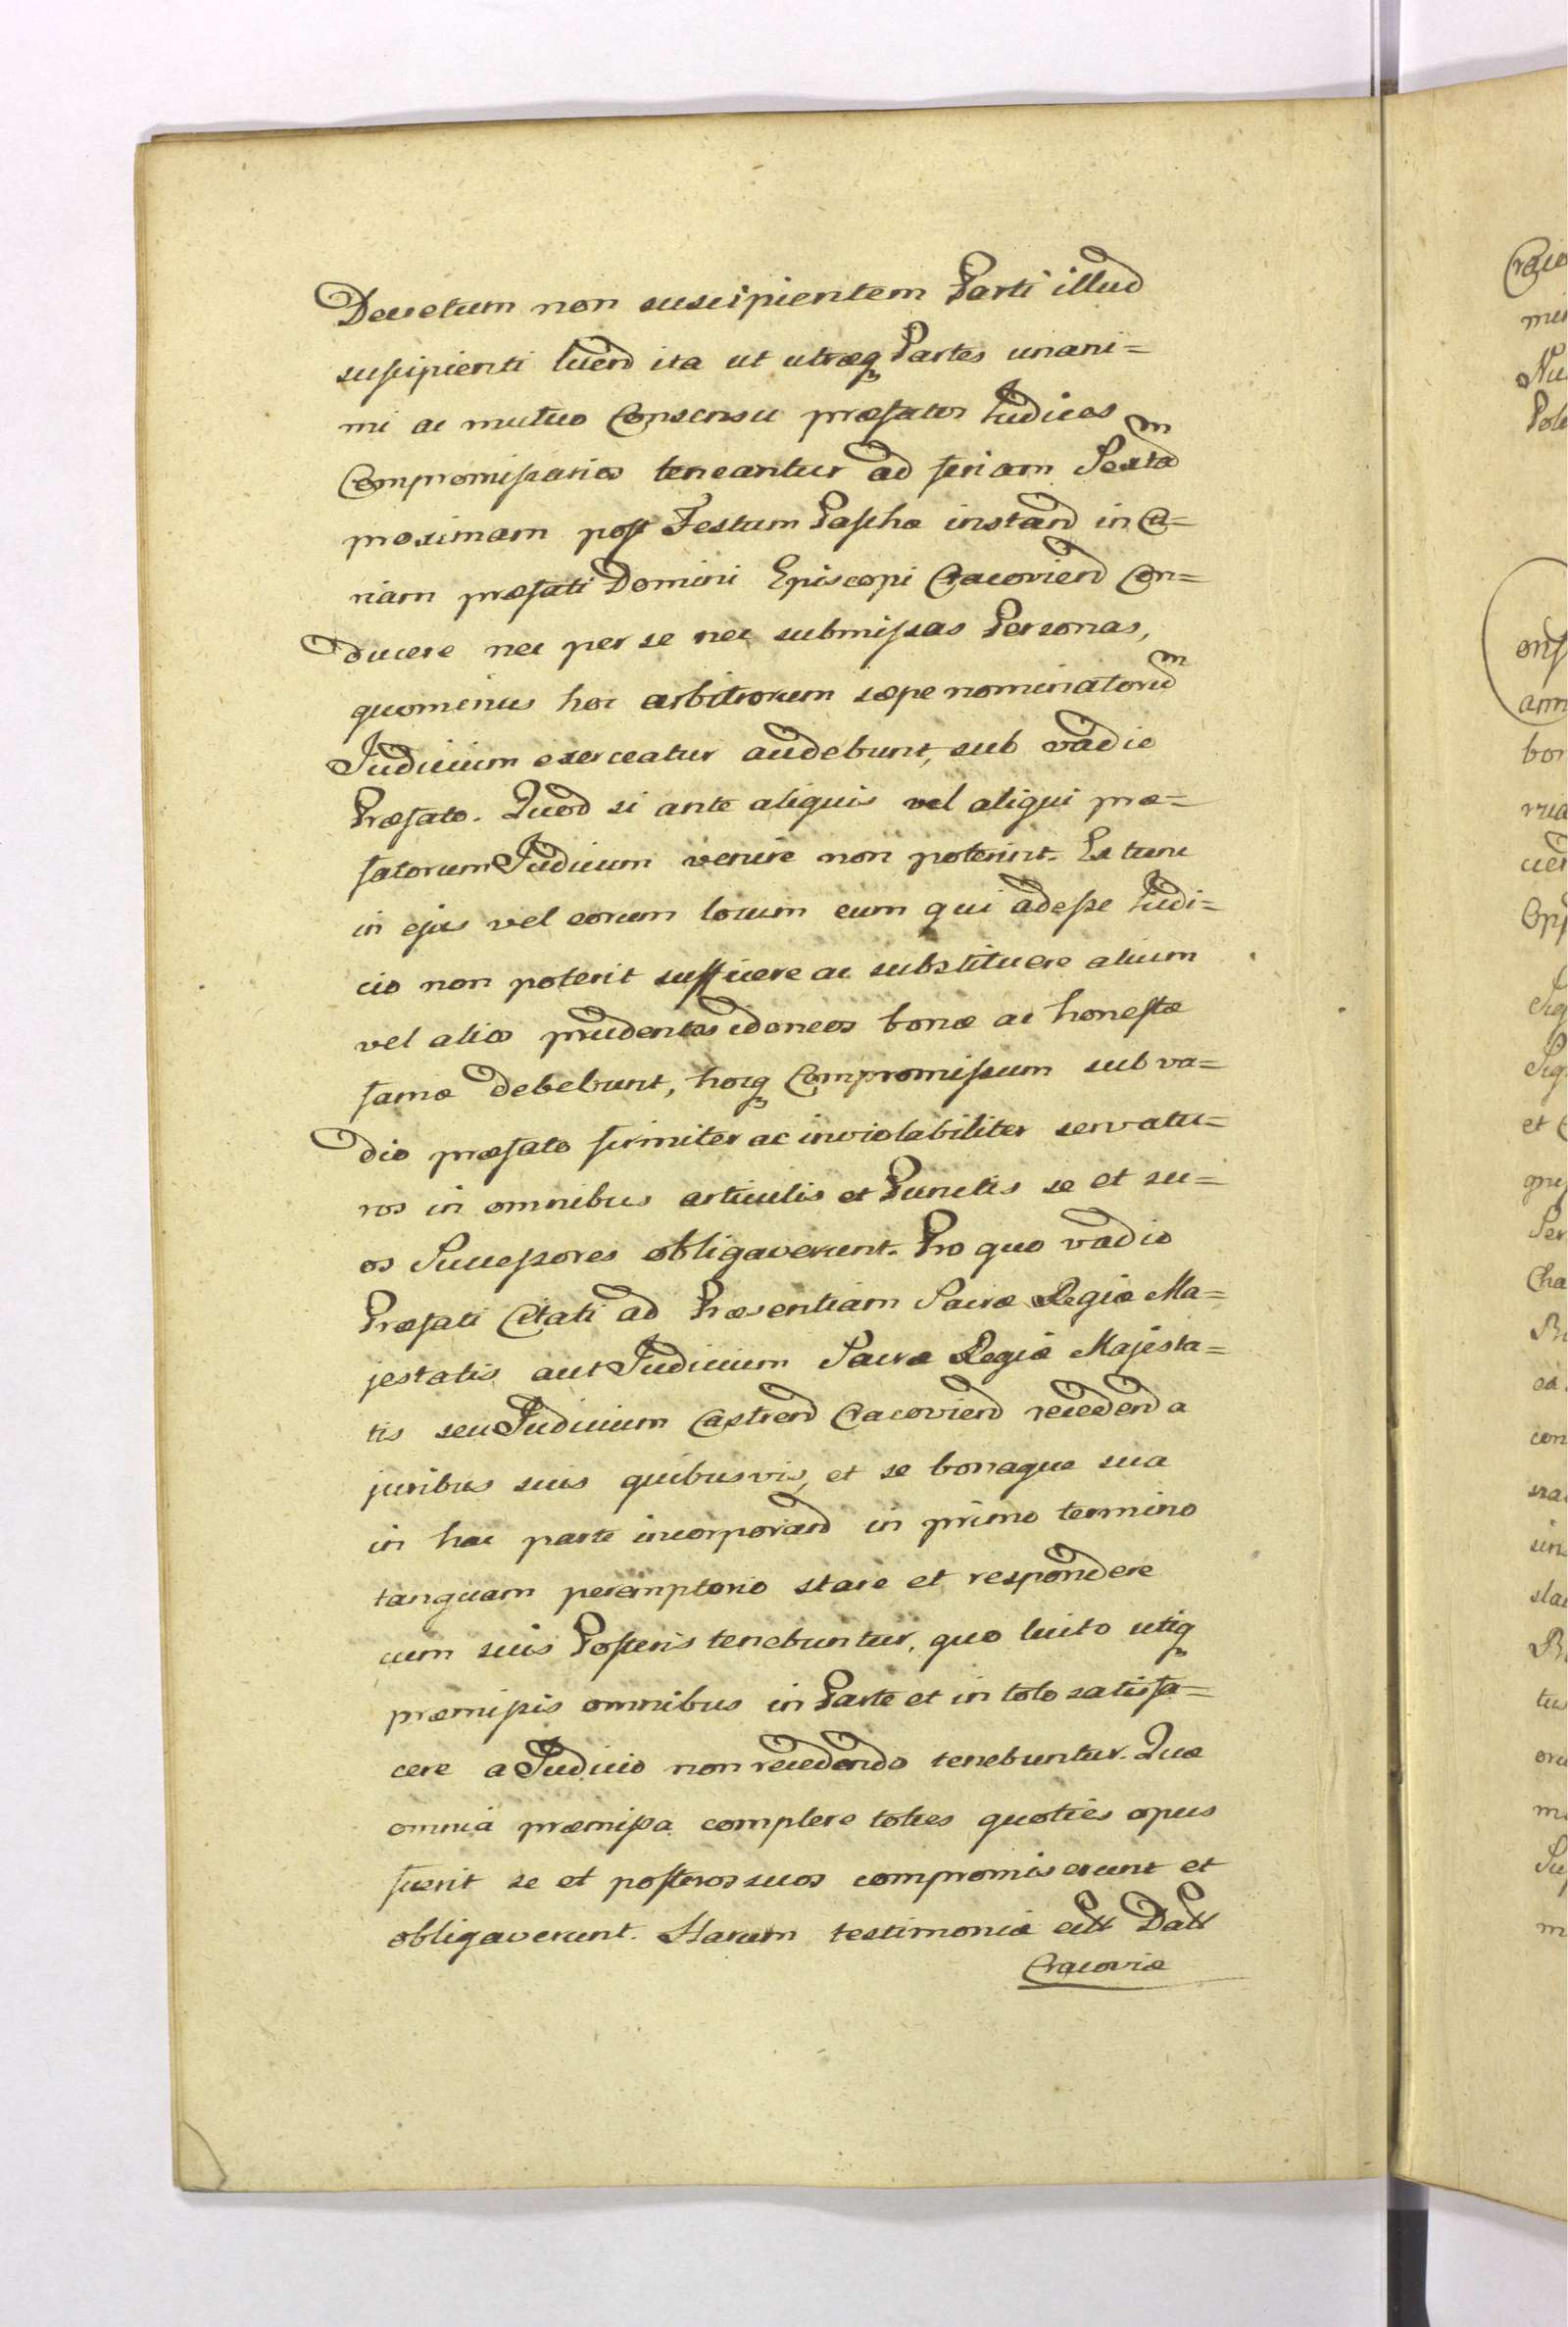 Decretum non suscipientem Parti illud
suscipienti luend ita ut utræq Partes unani=
mi ac mutuo Consensu præfatos Iudices
Compromissarios teneantur ad feriam Sextam
proximam post Festum Paschæ instand in Cu=
riam præfati Domini Episcopi Cracoviend Con=
ducere nec per se nec submissas Personas,
quominus hoc arbitrorum sæpe nominatorum
Judicium exerceatur audebunt, sub vadio
Præfato. Quod si ante aliquis vel aliqui præ=
fatorum Judicum venire non poterint. Ex tunc
in ejus vel eorum locum eum qui adesse Iudi=
cio non poterit sufficere ac substituere alium
vel alios prudentes idoneos bonæ ac honestæ
famæ debebunt, hocq Compromissum sub va=
dio præfato firmiter ac inviolabiliter servatu=
ros in omnibus articulis et Punctis se et su=
os Successores obligaverunt. Pro quo vadio
Præfati Citati ad Præsentiam Sacræ Regiæ Ma=
jestatis aut Judicium Sacræ Regiæ Majesta=
tis seu Judicium Castrend Cracoviend recedend a
juribus suis quibusvis, et se bonaque sua
in hac parte incorporand in primo termino
tanquam peremptorio stare et respondere
cum suis Posteris tenebuntur, quo luito utiq
præmissis omnibus in Parte et in toto satisfa=
cere a Judicio non recedendo tenebuntur. Quæ
omnia præmissa complere toties quoties opus
fuerit se et posteros suos compromiserunt et
obligaverunt. Harum testimonia Datt
Cracoviæ